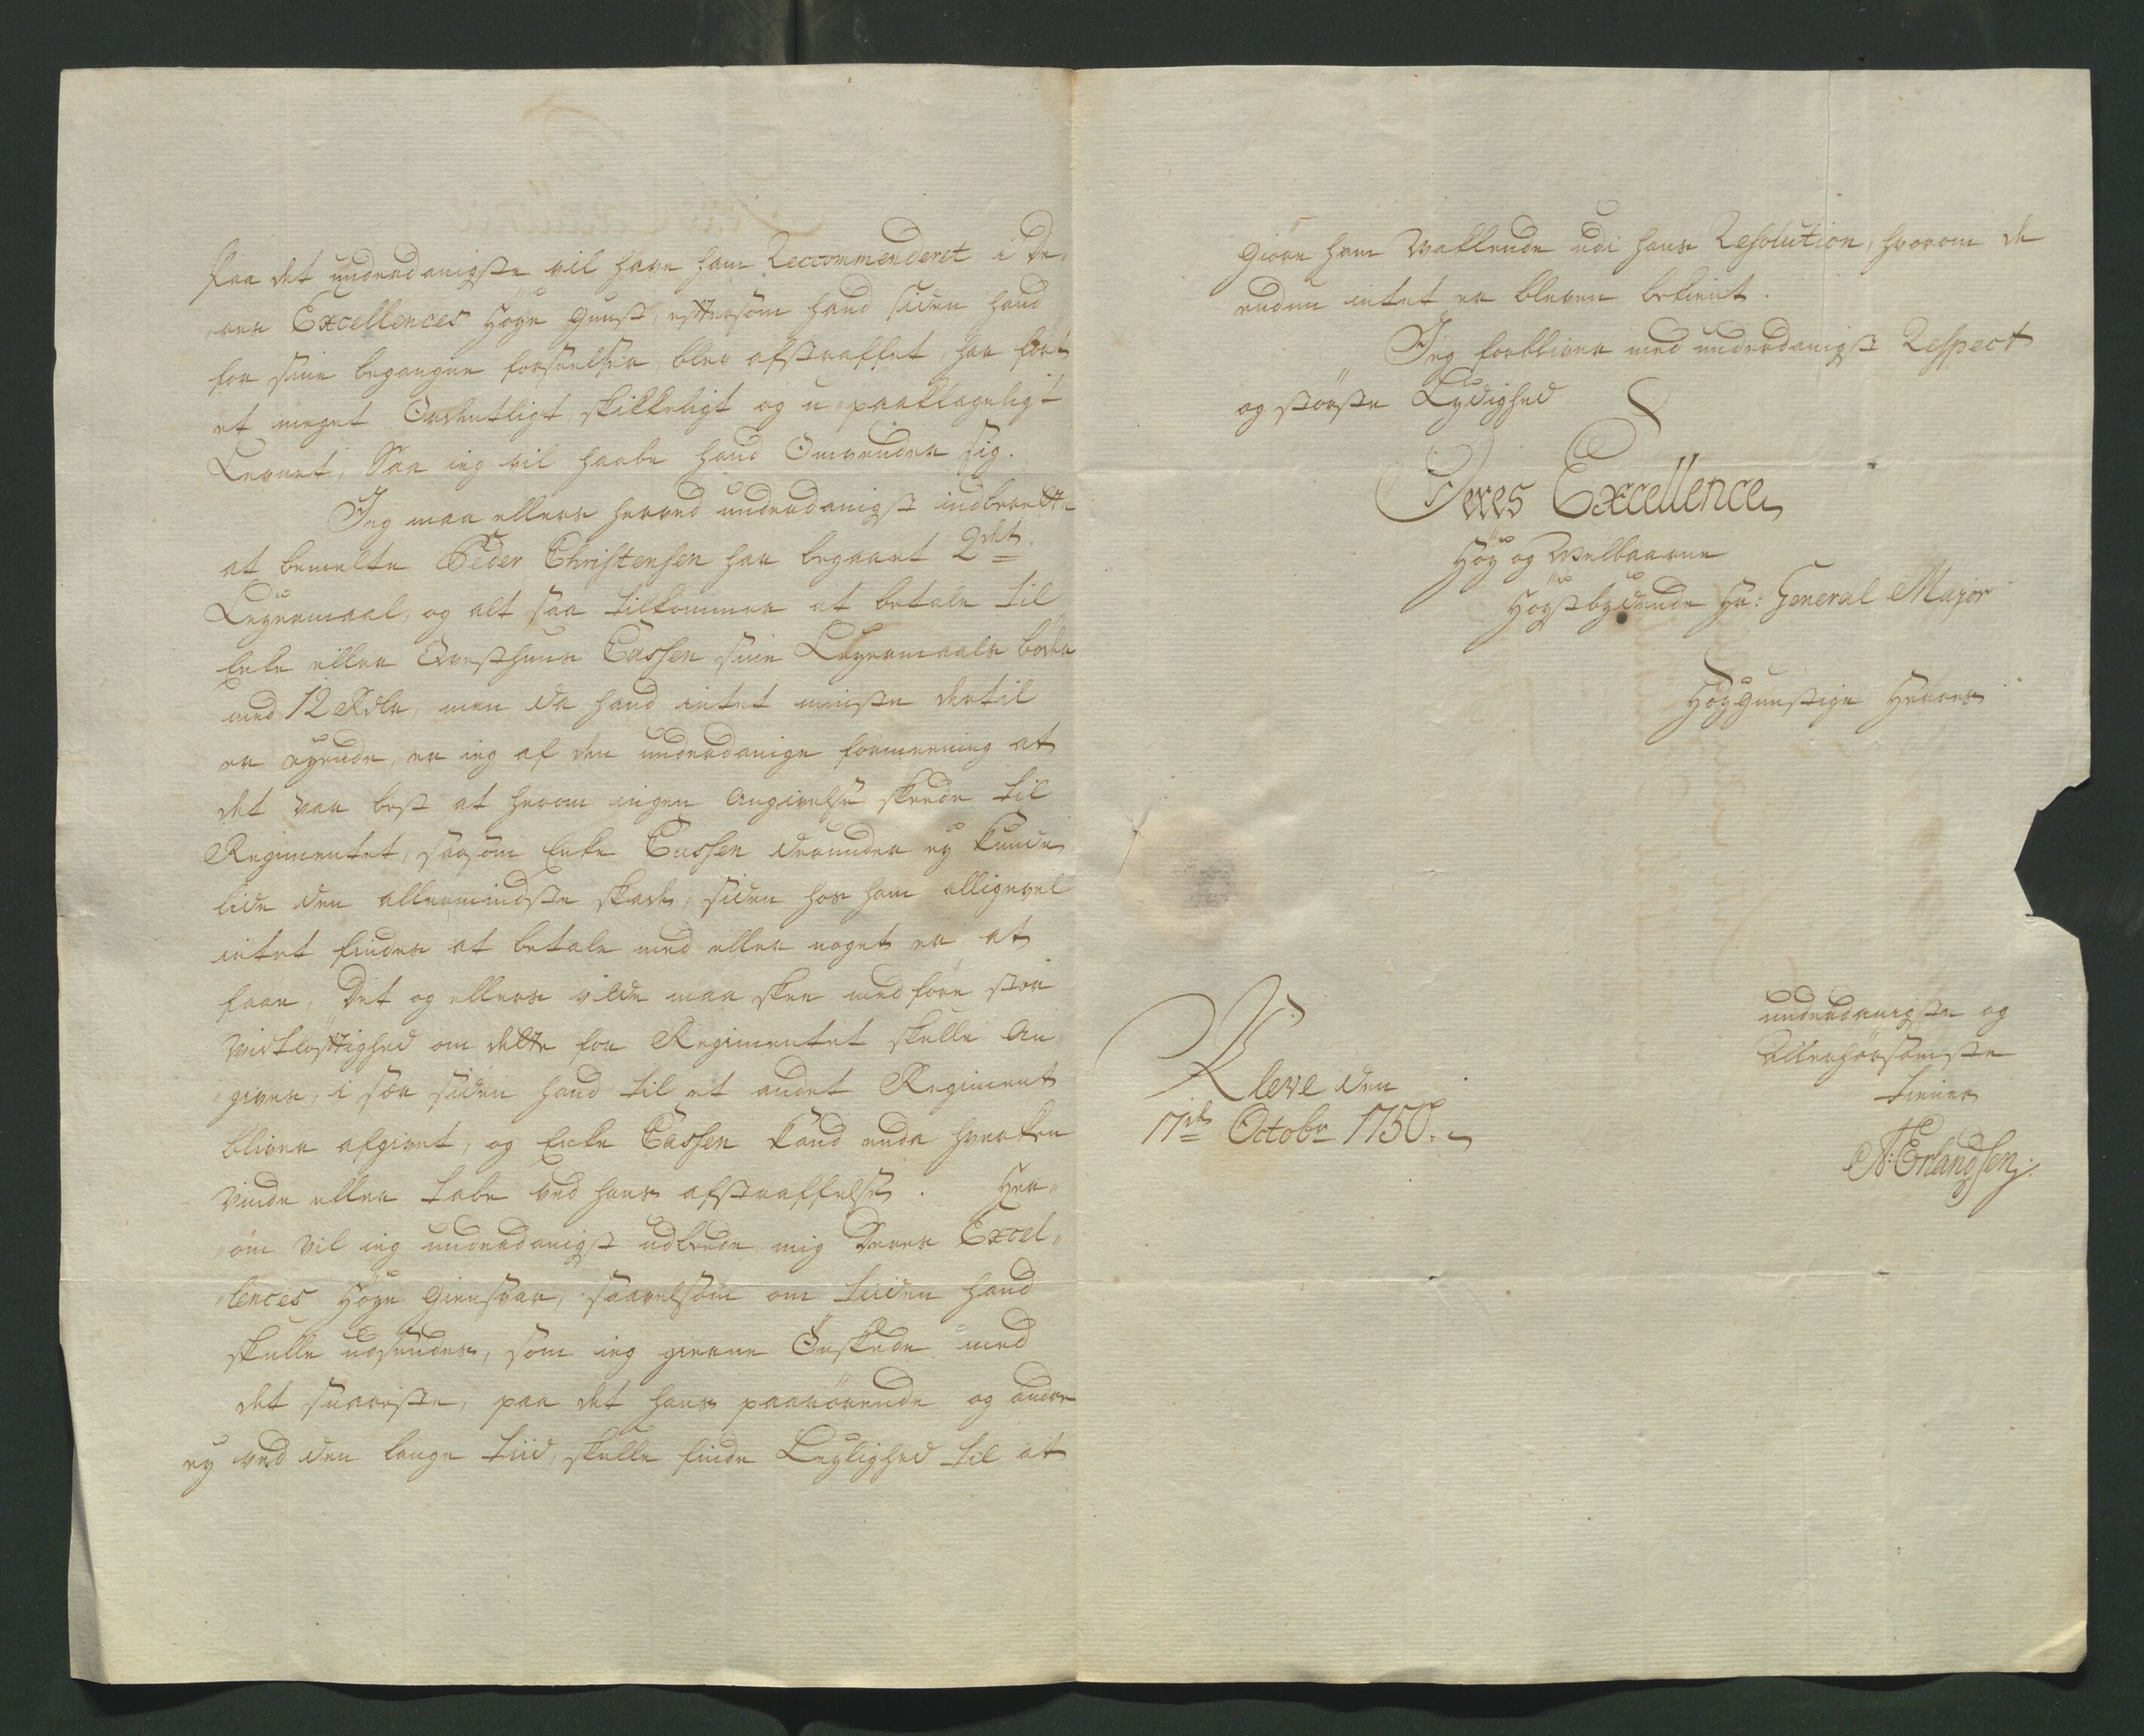 paa det underdanigste vil have ham Reccommenderet i De„
„res Excellences Høye Gunst, efftersom hand siden hand
for sine begangne forseelser, blev afstraffet, har fört
et meget Ordentligt skikkeligt og u-paaklageligt
Levnet, Saa ieg vil haabe hand Omvender sig.
Jeg maa ellers herved underdanigst indberette
at bemelte Peder Christensen har begaaet 2det
Leyermaal, og alt saa tilkommer at betale til
Enke eller Qvesthuus Cassen sine Leyermaals böder
med 12 Rdlr, men da hand intet mindste dertil
er eyende, er ieg af den underdanige formeening at
det var best at herom ingen Angivelse skeede til
Regimentet, saasom Enke Cassen derunder ey kunde
lide den allermindste skade, siden hos ham alligevel
intet findes at betale med eller noget er at
faae, Det og ellers vilde maa skee medføre stor
Vidtløfftighed om dette for Regimentet skulle An„
„gives, i sær siden hand til et andet Regiment
bliver afgivet, og Enke Cassen kand enda hverken
vinde eller tabe ved hans afstraffelse. Her„
„om vil ieg underdanigst udbede mig Deres Excel„
„lences Høye Giensvar, saavelsom om tiiden hand
skulle udsendes, som ieg gierne Önskede med
det snareste, paa det hans paarörende og andre
ey ved den lange tiid, skulle finde Leylighed til at
giöre ham Vaklende udi hans Resolution, hvorom de
endnu intet er bleven bekient.
Jeg forbliver med underdanigst Respect
og störste Lydighed
Deres Excellence
Höy og Velbaarne
Höystbydende Hr: General Major
Höygunstige Herres
underdanigste og
Allerhörsomste
tiener
N: Erlandsen
Kleve den
17de Octobr 1750.